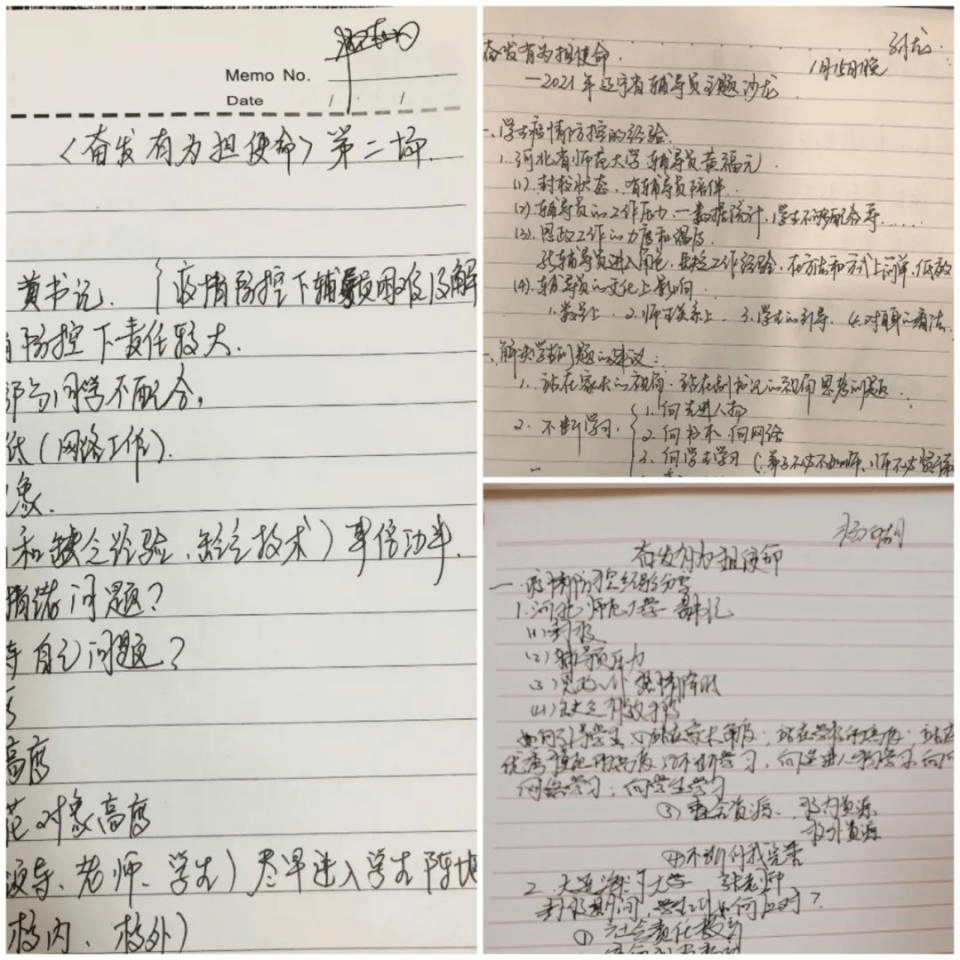 Memo No.
Date / /
《奋发有为担使命》第二场.
黄书记. {疫情防控下辅导员困难及解
防控下责任较大.
部分同学不配合,
低(网络工作).
象.
和缺乏经验、缺乏技术)事倍功半.
情绪问题?
自己问题?
高度
范对象高度
领导、老师、学生)尽早进入学生阵地
校内、校外)
孙龙
1月15日晚
奋发有为担使命.
—2021年辽宁省辅导员主题沙龙
一、学生疫情防控的经验.
1. 河北省师范大学 辅导员黄福元
(1). 封校状态, 有辅导员陪伴.
(2). 辅导员的工作压力. —数据统计, 学生不够配合等......
(3). 思政工作的力度和温度.
新辅导员进入角色, 缺乏工作经验, 在方法和方式上简单, 低效
(4). 辅导员的文化上影响.
1. 教学上. 2. 师生关系上. 3. 学生的引导. 4. 对自己的看法.
一、解决学生问题的建议:
1. 站在家长的视角, 站在副书记的视角思考问题
2. 不断学习. { 1. 向先进人物
2. 向书本、向网络
3. 向学生学习 (弟子不必不如师, 师不必贤
奋发有为担使命
一. 疫情防控经验分享
1. 河北师范大学 黄书记
(1) 封校
(2) 辅导员压力
(4) 缺乏
如何引导学生, ①站在家长角度; 站在学校的高度; 站在
优秀 高度 ②不断学习, 向先进人物学习, 向
网络学习; 向学生学习
③ 整合资源、校内资源
校外资源
④ 不断自我完善
2. 大连海洋大学 张老师
封校期间, 学生 如何应对?
①